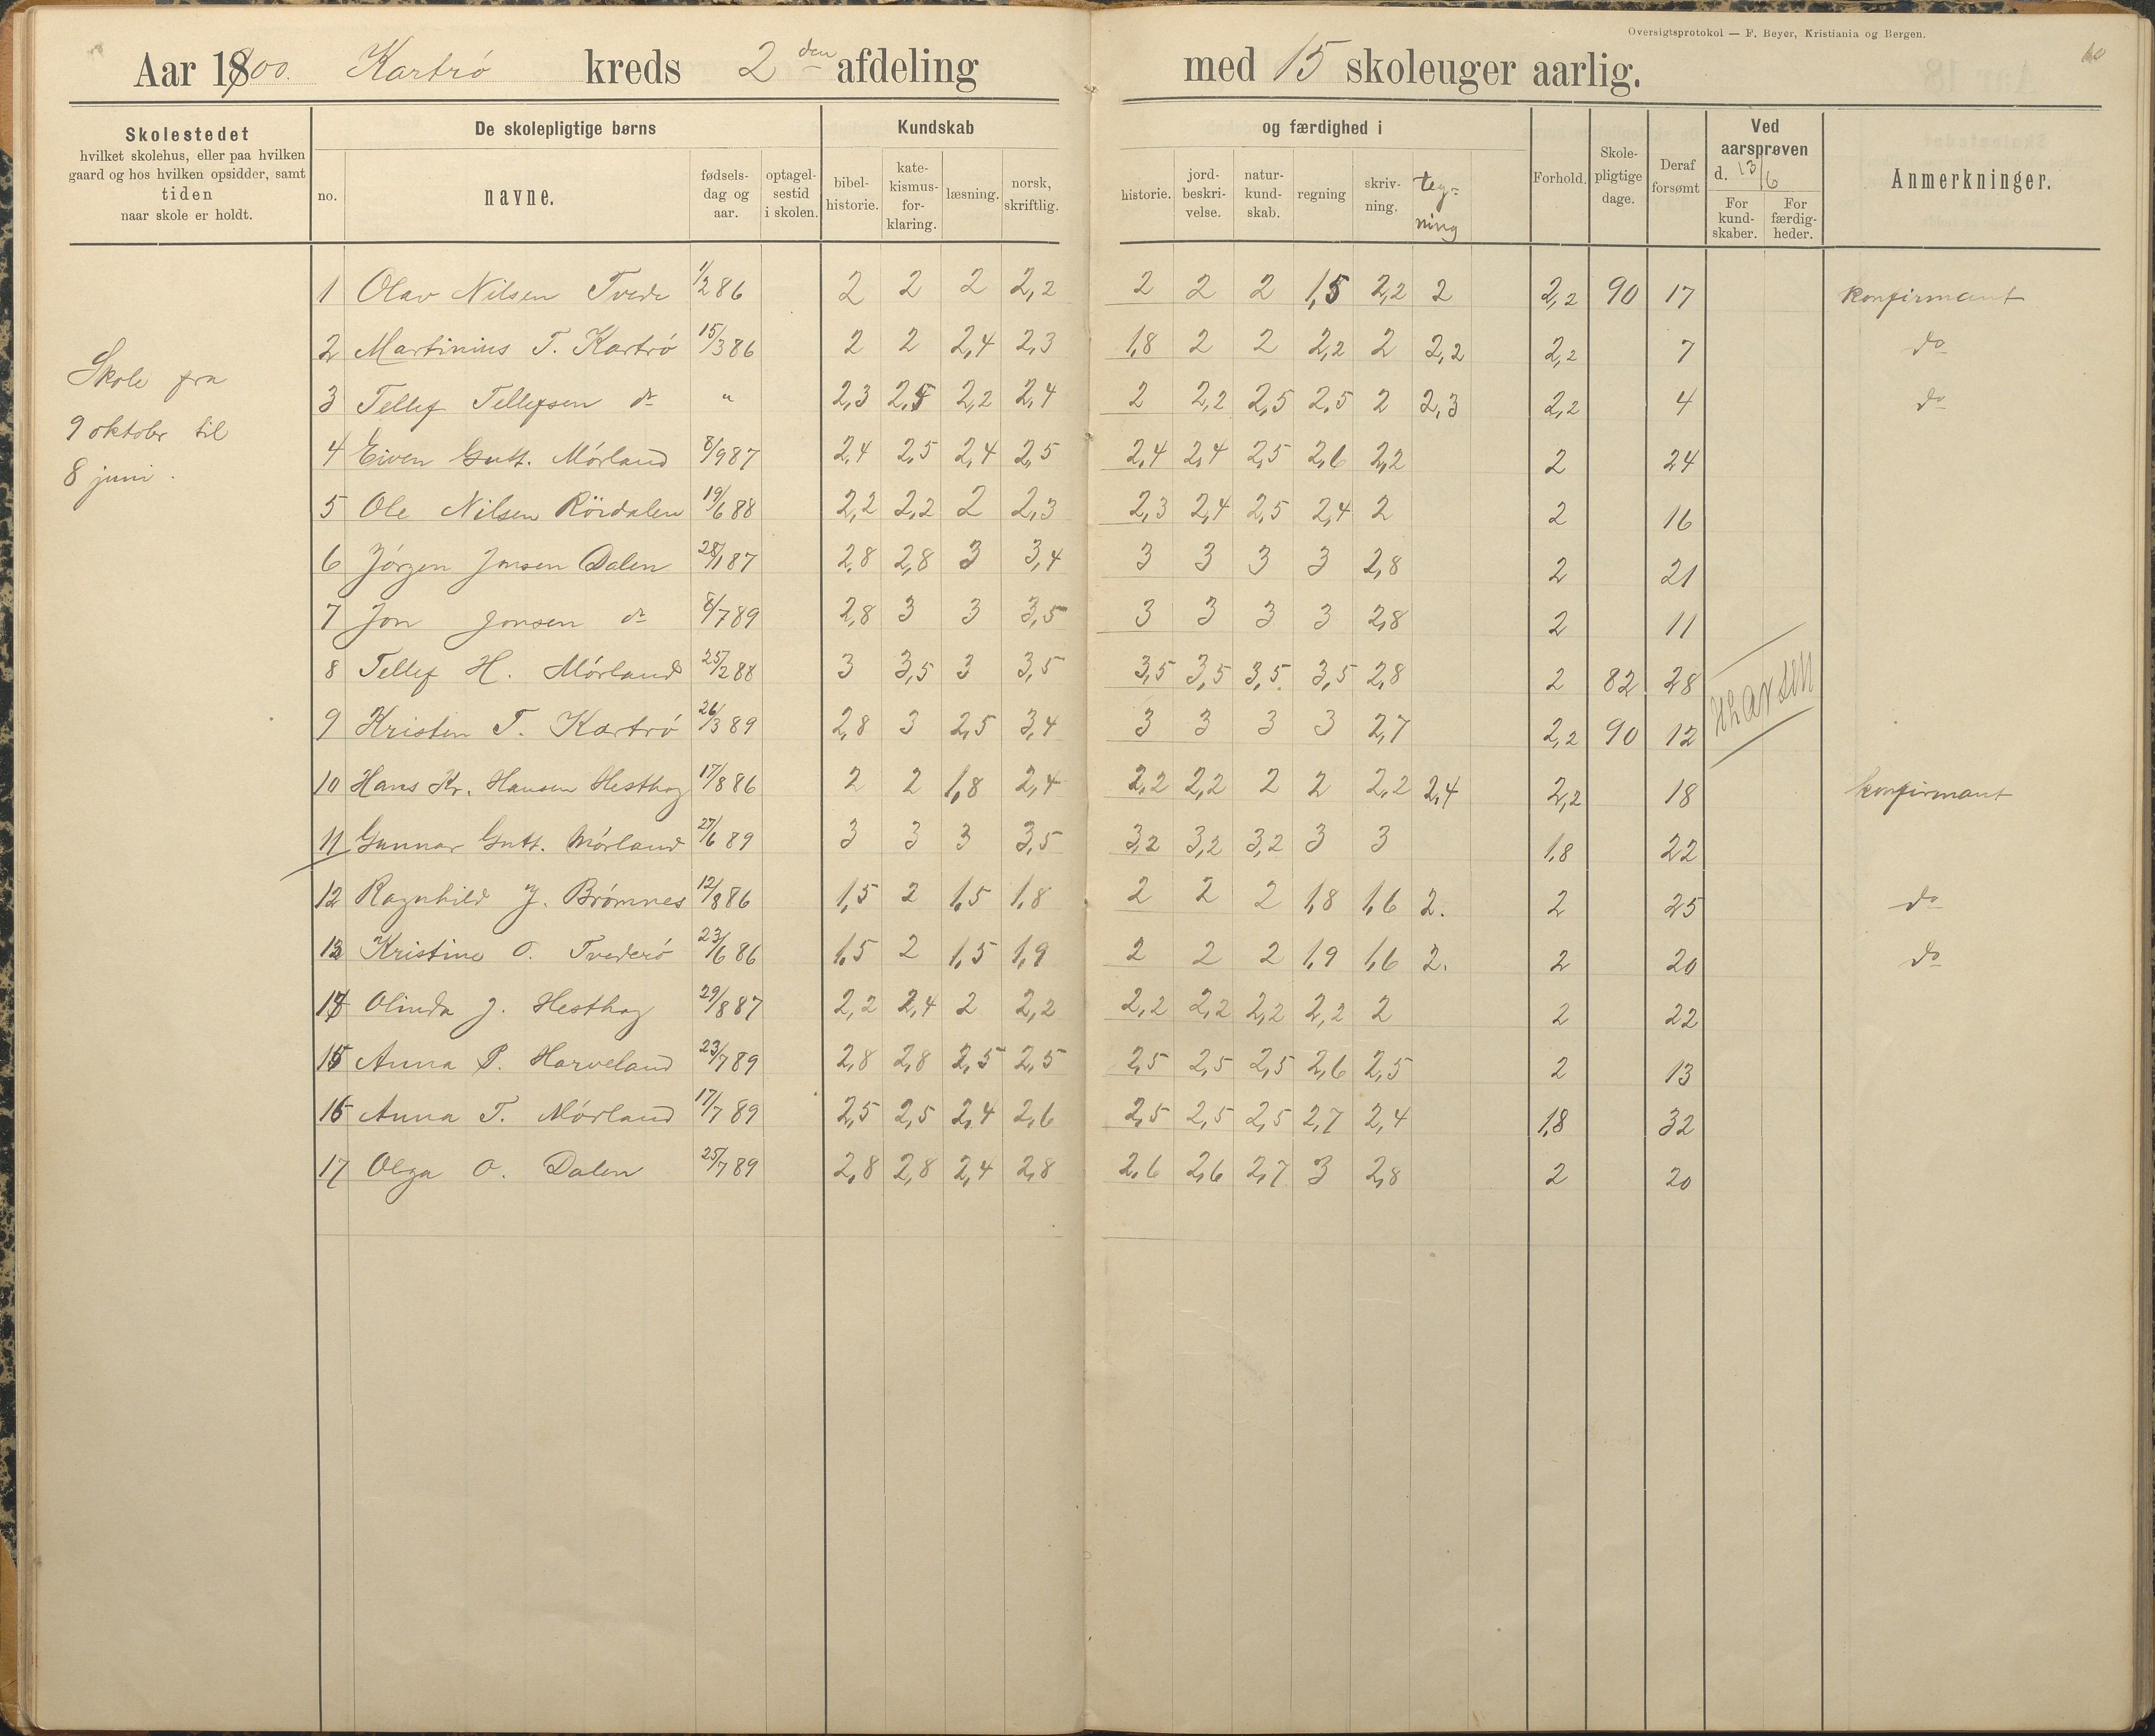 Oversigtsprotokol — F. Beyer, Kristiania og Bergen.
60
Aar 1900. Kartrö kreds 2den afdeling med 15 skoleuger aarlig.
Skolestedet
hvilket skolehus, eller paa hvilken
gaard og hos hvilken opsidder, samt
tiden
naar skole er holdt.
De skolepligtige børns
no.
navne.
fødsels-
dag og
aar.
optagel-
sestid
i skolen.
Kundskab
bibel-
historie.
kate-
kismus-
for-
klaring.
læsning.
norsk,
skriftlig.
og færdighed i
historie.
jord-
beskri-
velse.
natur-
kund-
skab.
regning
skriv-
ning.
Teg-
ning
Forhold.
Skole-
pligtige
dage.
Deraf
forsømt
Ved
aarsprøven
d. 13/6
For
kund-
skaber.
For
færdig-
heder.
Anmerkninger.
Skole fra
9 oktobr til
8 juni.
1 Olav Nilsen Tvede 1/2 86 2 2 2 2,2 2 2 2 1,5 2,2 2 2,2 90 17 konfirmant
2 Martinius T. Kartrö 15/3 86 2 2 2,4 2,3 1,8 2 2 2,2 2 2,2 2,2 7 do
3 Tellef Tellefsen do " 2,3 2,5 2,2 2,4 2 2,2 2,5 2,5 2 2,3 2,2 4 do
4 Eiven Gutt. Mörland 8/9 87 2,4 2,5 2,4 2,5 2,4 2,4 2,5 2,6 2,2 2 24
5 Ole Nilsen Röirdalen 19/6 88 2,2 2,2 2 2,3 2,3 2,4 2,5 2,4 2 2 16
6 Jörgen Jonsen Dalen 28/1 87 2,8 2,8 3 3,4 3 3 3 3 2,8 2 21
7 Jon Jonsen do 8/7 89 2,8 3 3 3,5 3 3 3 3 2,8 2 11
8 Tellef H. Mörland 25/2 88 3 3,5 3 3,5 3,5 3,5 3,5 3,5 2,8 2 82 28
9 Kristen T. Kartrö 26/3 89 2,8 3 2,5 3,4 3 3 3 3 2,7 2,2 90 12
10 Hans Kr. Hansen Hesthag 17/8 86 2 2 1,8 2,4 2,2 2,2 2 2 2,2 2,4 2,2 18 konfirmant
11 Gunnar Gutt. Mörland 27/6 89 3 3 3 3,5 3,2 3,2 3,2 3 3 1,8 22
12 Ragnhild J. Brömnes 12/8 86 1,5 2 1,5 1,8 2 2 2 1,8 1,6 2. 2 25 do
13 Kristine O. Tvederö 23/6 86 1,5 2 1,5 1,9 2 2 2 1,9 1,6 2. 2 20 do
14 Olinda J. Hesthag 29/8 87 2,2 2,4 2 2,2 2,2 2,2 2,2 2,2 2 2 22
15 Anna P. Harveland 23/7 89 2,8 2,8 2,5 2,5 2,5 2,5 2,5 2,6 2,5 2 13
16 Anna T. Mörland 17/7 89 2,5 2,5 2,4 2,6 2,5 2,5 2,5 2,7 2,4 1,8 32
17 Olga O. Dalen 25/7 89 2,8 2,8 2,4 2,8 2,6 2,6 2,7 3 2,8 2 20